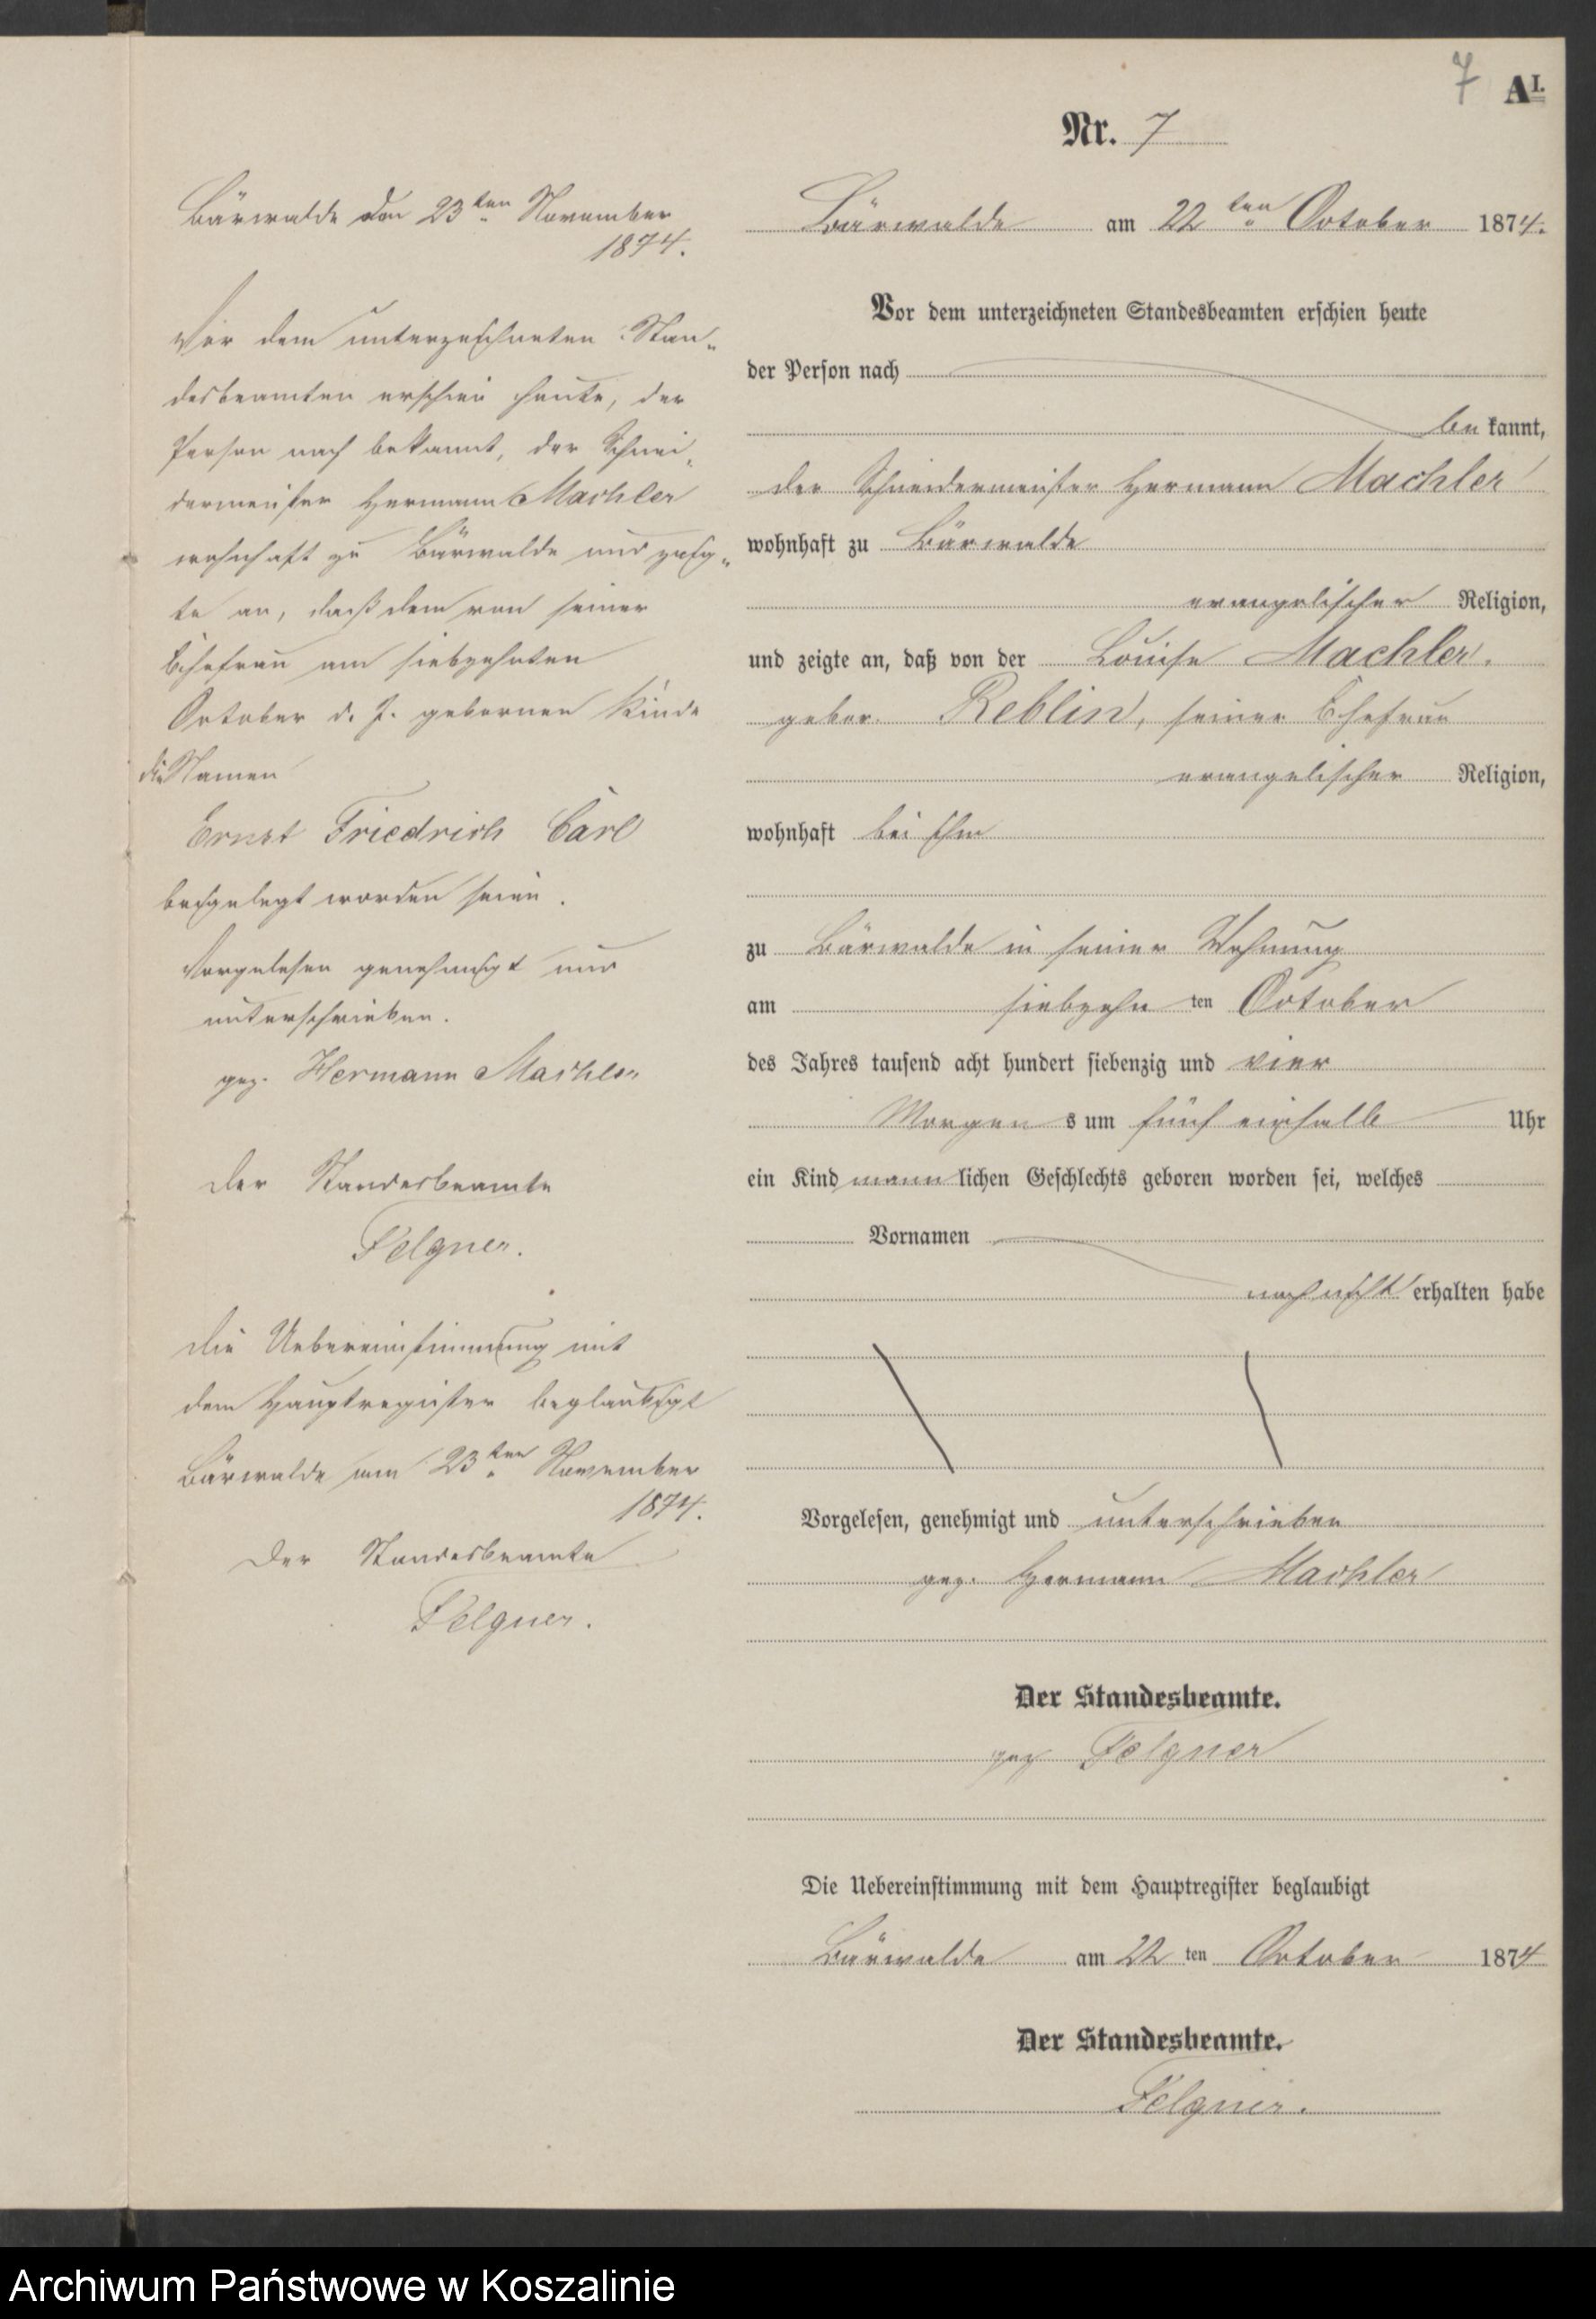 7 A I.
Nr. 7
Bärwalde den 23ten November
1874.
Vor dem unterzeichneten Stan-
desbeamten erschien heute, der
Person nach bekannt, der Schnei-
dermeister Hermann Machler
wohnhaft zu Bärwalde und zeig-
te an, daß dem von seiner
Ehefrau am siebzehnten
October d. J. gebornen Kinde
die Namen
Ernst Friedrich Carl
beigelegt worden seien.
Vorgelesen genehmigt und
unterschrieben.
gez. Hermann Machler
Der Standesbeamte
Felgner.
Die Uebereinstimmung mit
dem Hauptregister beglaubigt
Bärwalde am 23ten November
1874.
Der Standesbeamte
Felgner.
Bärwalde am 22ten October 1874.
Vor dem unterzeichneten Standesbeamten erschien heute
der Person nach
be kannt,
der Schneidermeister Hermann Machler
wohnhaft zu Bärwalde
evangelischer Religion,
und zeigte an, daß von der Louise Machler,
gebor. Reblin, seiner Ehefrau
evangelischer Religion,
wohnhaft bei ihm
zu Bärwalde in seiner Wohnung
am siebzehn ten October
des Jahres tausend acht hundert siebenzig und vier
Morgen s um fünf einhalb Uhr
ein Kind mann lichen Geschlechts geboren worden sei, welches
Vornamen
noch nicht erhalten habe
Vorgelesen, genehmigt und unterschrieben
gez. Hermann Machler
Der Standesbeamte.
gez Felgner
Die Uebereinstimmung mit dem Hauptregister beglaubigt
Bärwalde am 22 ten October 1874
Der Standesbeamte.
Felgner.
Archiwum Państwowe w Koszalinie